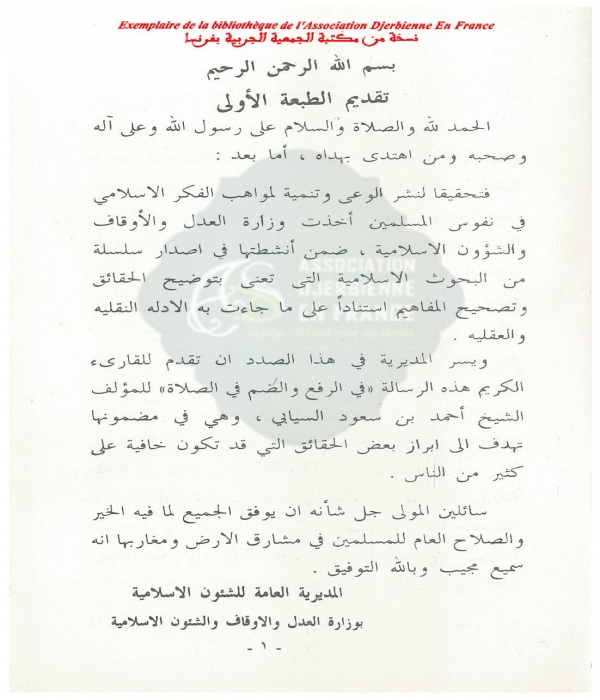 Exemplaire de la bibliothèque de l'Association Djerbienne En France
نسخة من مكتبة الجمعية الجربية بفرنسا
بسم الله الرحمن الرحيم
تقديم الطبعة الأولى
الحمد لله والصلاة والسلام على رسول الله وعلى آله
وصحبه ومن اهتدى بهداه ، أما بعد :
فتحقيقا لنشر الوعى وتنمية لمواهب الفكر الاسلامي
في نفوس المسلمين أخذت وزارة العدل والأوقاف
والشؤون الاسلامية ، ضمن أنشطتها في اصدار سلسلة
من البحوث الاسلامية التى تعنى بتوضيح الحقائق
وتصحيح المفاهيم استناداً على ما جاءت به الادله النقليه
والعقليه .
ويسر المديرية في هذا الصدد ان تقدم للقارىء
الكريم هذه الرسالة «في الرفع والضم في الصلاة» للمؤلف
الشيخ أحمد بن سعود السيابي ، وهي في مضمونها
تهدف الى ابراز بعض الحقائق التي قد تكون خافية على
كثير من الناس .
سائلين المولى جل شأنه ان يوفق الجميع لما فيه الخير
والصلاح العام للمسلمين في مشارق الارض ومغاربها انه
سميع مجيب وبالله التوفيق .
المديرية العامة للشئون الاسلامية
بوزارة العدل والاوقاف والشئون الاسلامية
- ١ -
ASSOCIATION
DJERBIENNE
EN FRANCE